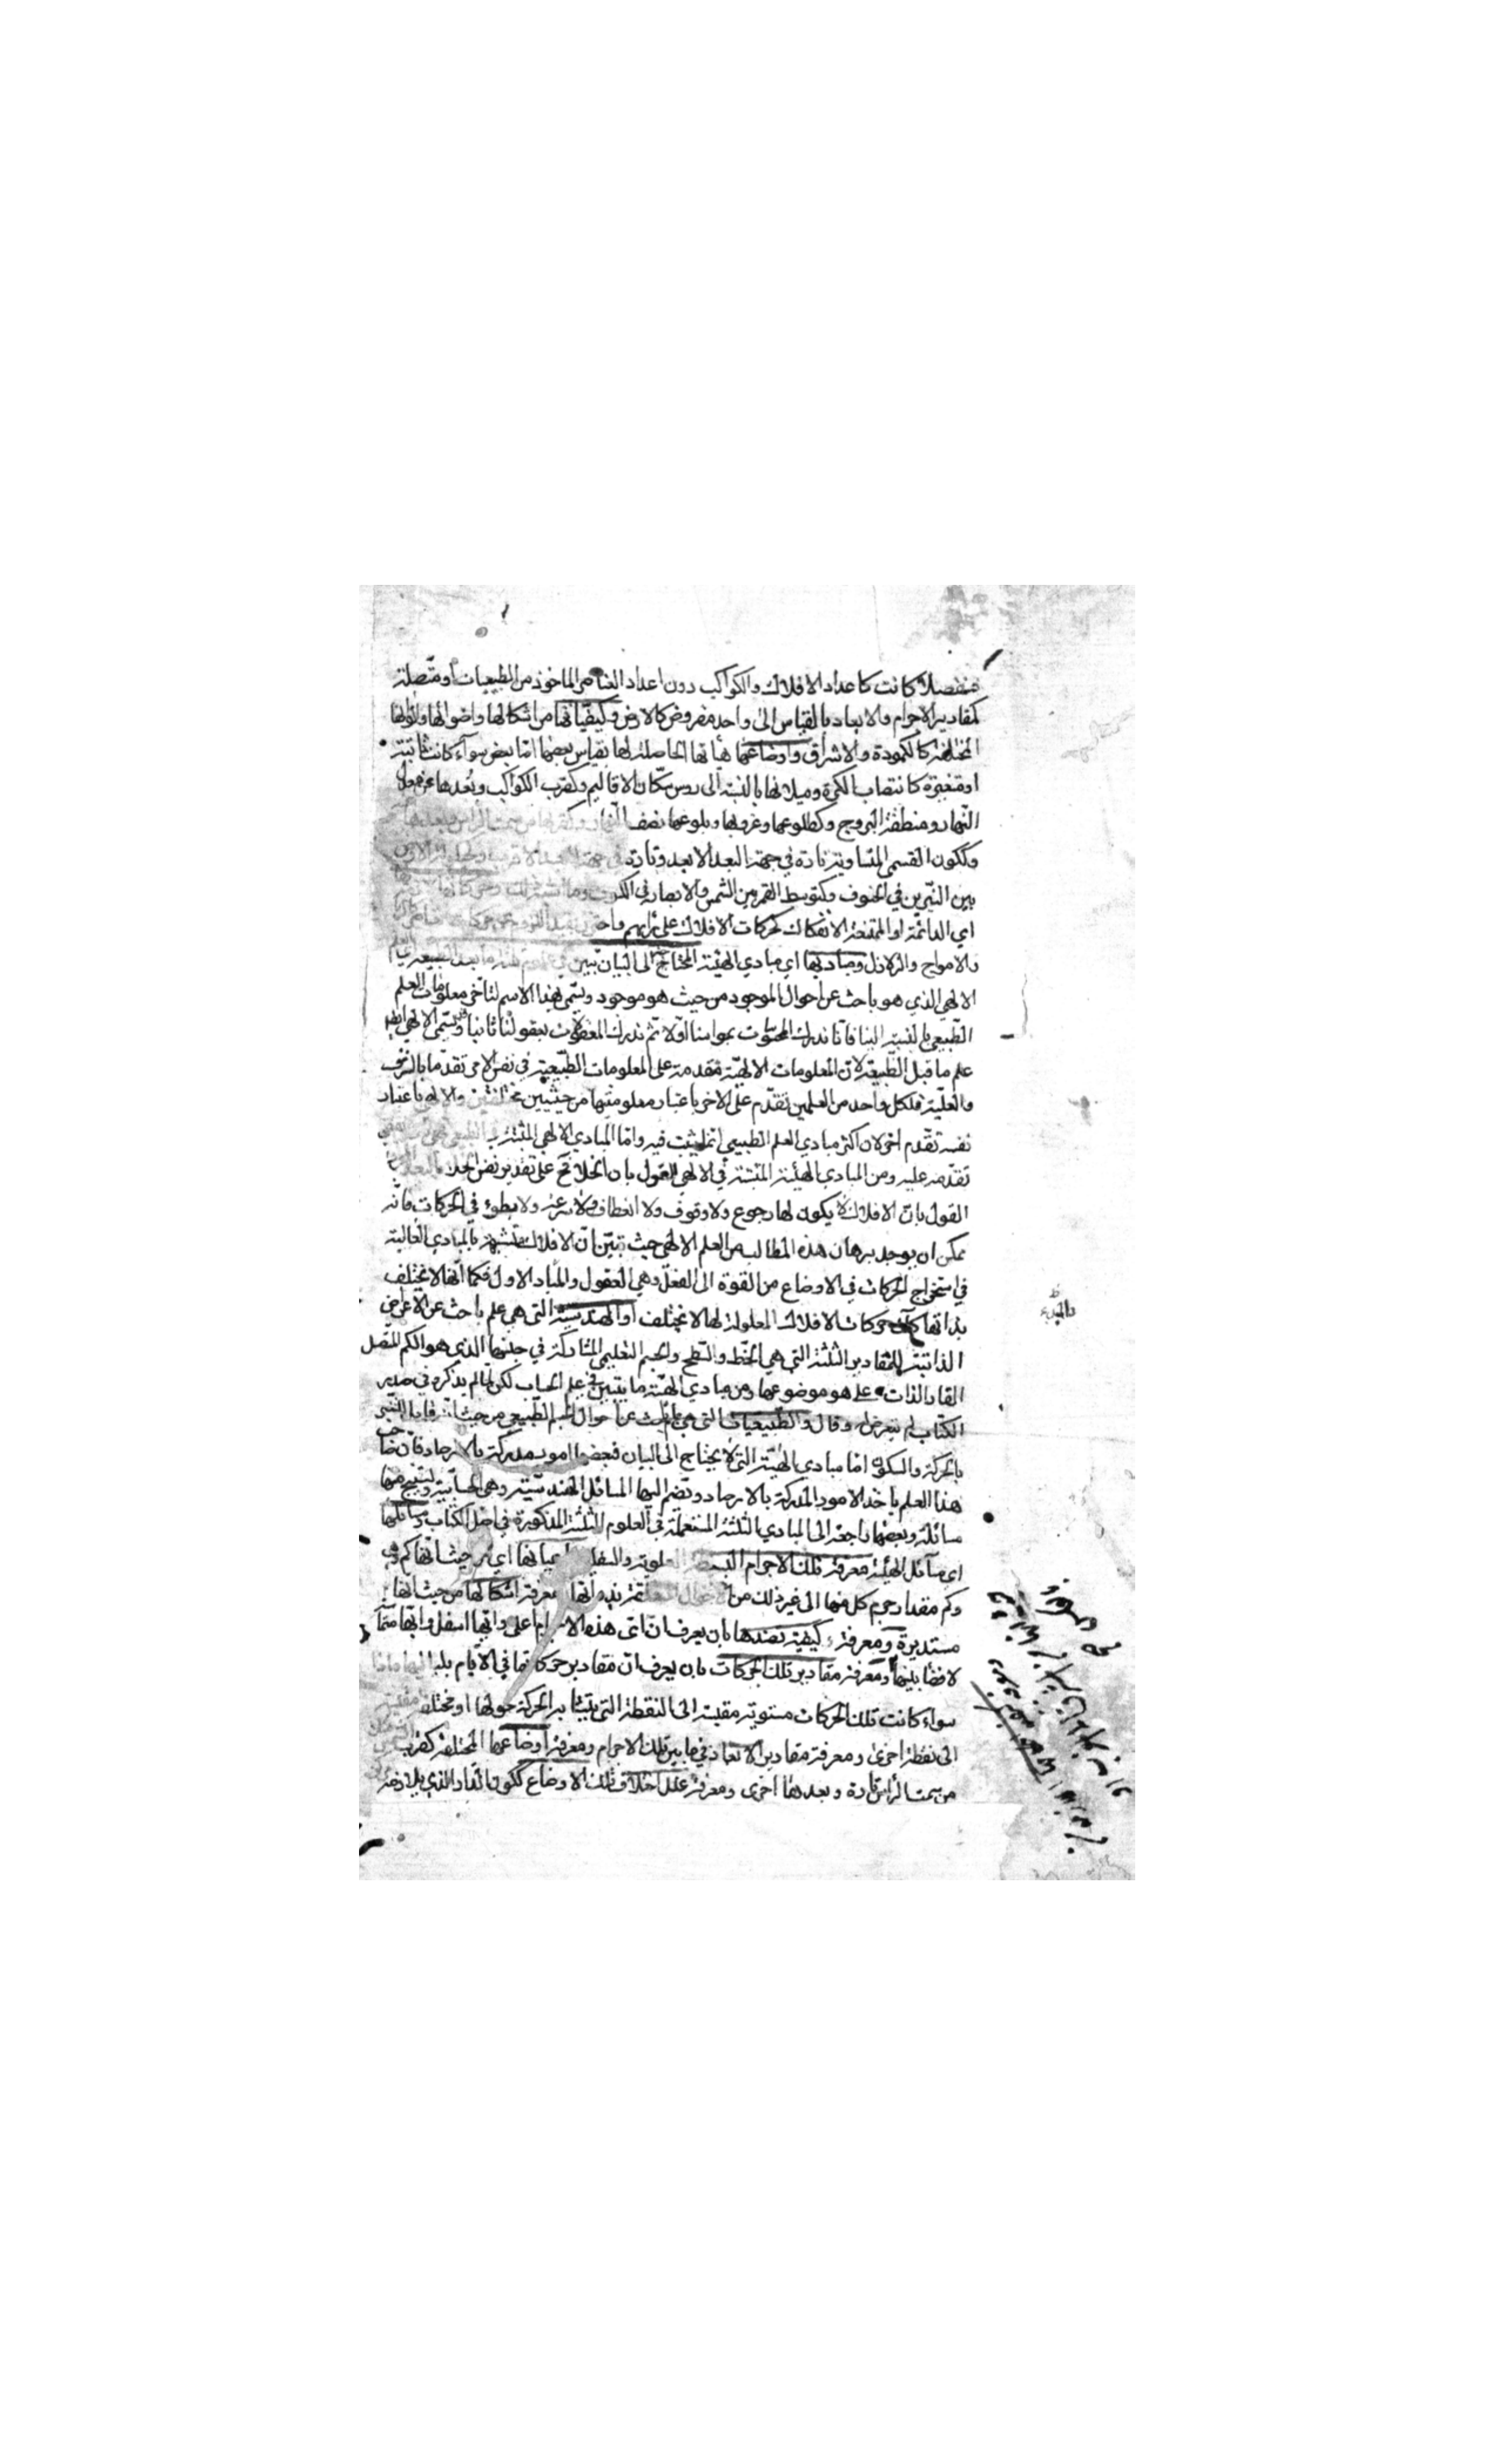 منفصلة كانت كاعداد الافلاك والكواكب دون اعداد العناصر الماخوذ من الطبيعيات او متصلة
كمقادير الاجرام والابعاد بالقياس الى واحد مفروض كالارض وكيفياتها من اشكالها واضوائها والوانها
المختلفة كالكمودة والاشراق واوضاعها هيأتها الحاصلة لها بقياس بعضها الى بعض سواء كانت ثابتة
او متغيرة كانتصاب الكرة وميلانها بالنسبة الى روس سكان الاقاليم وكقرب الكواكب وبعدها عن معدل
النهار ومنطقة البروج وكطلوعها وغروبها وبلوغها نصف النهار وكقربها من سمت الراس وبعدها
وككون القسي المتساوية تارة في جهة البعد الابعد وتارة في جهة البعد الاقرب
بين النيرين في الخسوف وكتوسط القمر بين الشمس والابصار في الكسوف وما اشبه ذلك وحركاتها
اي الدائمة او الممتنعة الانفكاك كحركات الافلاك على رايهم واحترز بقيد اللزوم عن حركات
والامواج والزلازل ومباديها اي مبادي الهيئة المحتاج الى البيان تبين في علوم ثلثة ما بعد الطبيعة
الالهي الذي هو باحث عن احوال الموجود من حيث هو موجود ويسمى بهذا الاسم لتاخر معلومات العلم
الطبيعي بالنسبة الينا فانا ندرك المحسوسات بحواسنا اولا ثم ندرك المعقولات بعقولنا ثانيا وقد يسمى الالهي ايضا
علم ما قبل الطبيعة لان المعلومات الالهية متقدمة على المعلومات الطبيعية في نفس الامر تقدما بالشرف
والعلية فلكل واحد من العلمين تقدم على الاخر باعتبار معلوميتها من حيثيتين مختلفتين والالهي باعتبار
نفسه تقدم اخر لان اكثر مبادي العلم الطبيعي انما يثبت فيه واما المبادي الالهي المثبتة
تقدمه عليه ومن المبادي الهيئة المثبتة في الالهي القول بان الخلاء مح على تقدير نفس الخلاء
القول بان الافلاك لا يكون لها رجوع ولا وقوف ولا انعطاف ولا سرعة ولا بطؤ في الحركات فانه
يمكن ان يوجد برهان هذه المطالب من العلم الالهي حيث تبين ان الافلاك متشبهة بالمبادي العالية
في استخراج الحركات في الاوضاع من القوة الى الفعل وهي العقول والمباد الاول فكما انها لا يختلف
بذاتها كك حركات الافلاك المعلولة لها لا يختلف او الهندسة التي هي علم باحث عن الاعراض
الذاتية للمقادير الثلثة التي هي الخط والسطح والجسم التعليمي المشاركة في جنسها الذي هو الكم المتصل
القار الذات على هو موضوعها ومن مبادي الهيئة ما يتبين في علم الحساب لكن لما لم يذكره في صدر
الكتاب لم يتعرض له وقال والطبيعيات التي هي علم باحث عن احوال الجسم الطبيعي من حيث انه قابل للتغير
بالحركة والسكون اما مبادي الهيئة التي لا يحتاج الى البيان فبعضها امور مدركة بالارصاد فان صاحب
هذا العلم ياخذ الامور المدركة بالارصاد وتضم اليها المسائل الهندسية وهي الحسابية وينتج منها
مسائله وبعضها راجعة الى المبادي الثلثة المستعملة في العلوم الثلثة المذكورة في اصل الكتاب ومسائلها
اي مسائل الهيئة معرفة تلك الاجرام البسيطة العلوية والسفلية باعيانها اي من حيث انها كم هي
وكم مقدار جرم كل منها الى غير ذلك من الاحوال المختصة بذواتها معرفة اشكالها من حيث انها
مستديرة ومعرفة كيفية نضدها بان يعرف ان اي هذه الاجرام اعلى وايها اسفل وايها متماسة
لا فضا بينها ومعرفة مقادير تلك الحركات بان يعرف ان مقادير حركاتها في الايام بلياليها ماذا
سواء كانت تلك الحركات مستوية مقيسة الى النقطة التي يتشابه الحركة حولها او مختلفة مقيسة
الى نقطة اخرى ومعرفة مقادير الابعاد في ما بين تلك الاجرام ومعرفة اوضاعها المختلفة كقرب
من سمت الراس تارة وبعدها اخرى ومعرفة علل اختلاف تلك الاوضاع ككون المدار الذي يلازمه